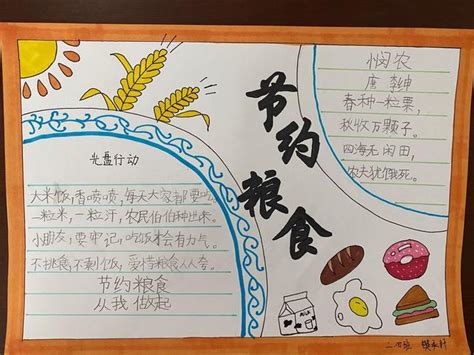 节约粮食
光盘行动
大米饭,香喷喷,每天大家都要吃。
一粒米,一粒汗,农民伯伯种出来。
小朋友,要牢记,吃饭才会有力气。
不挑食,不剩饭,爱惜粮食人人夸。
节约粮食
从我做起
悯农
唐 李绅
春种一粒粟,
秋收万颗子。
四海无闲田,
农夫犹饿死。
MILK